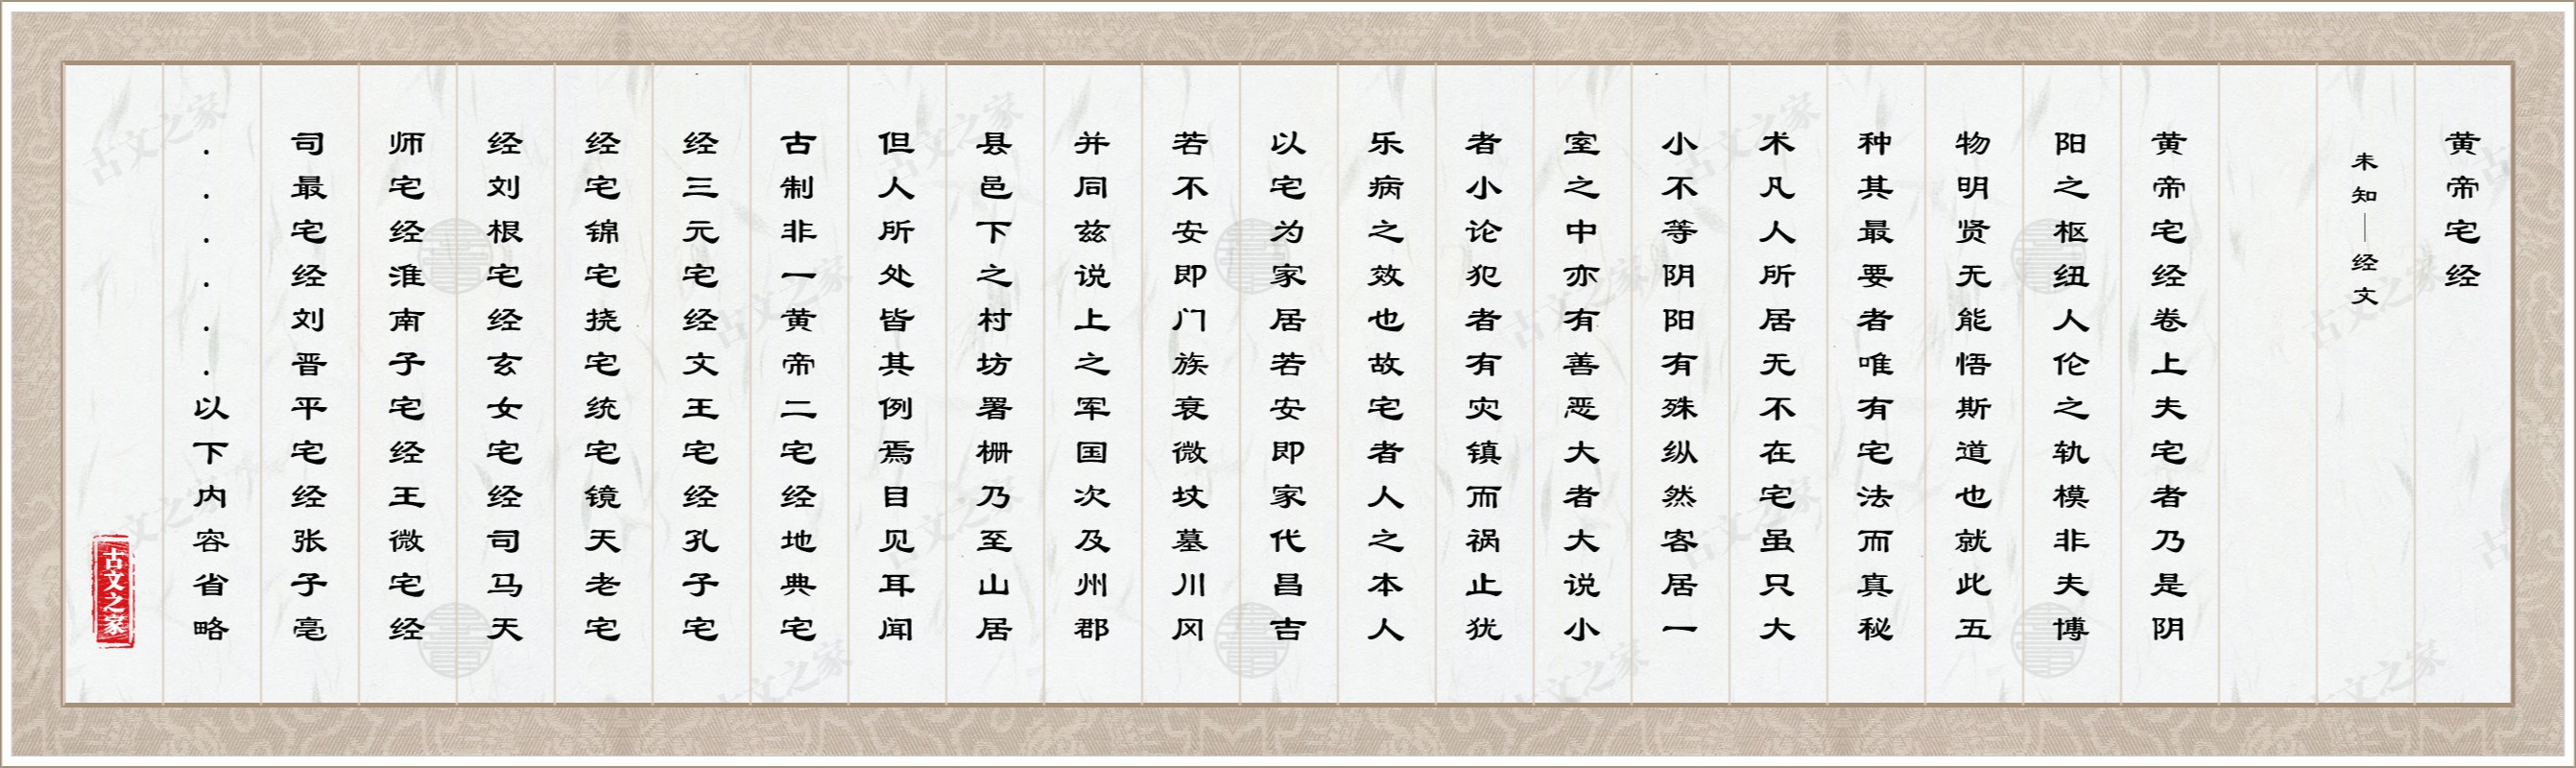 黄帝宅经
未知—经文
黄帝宅经卷上夫宅者乃是阴
阳之枢纽人伦之轨模非夫博
物明贤无能悟斯道也就此五
种其最要者唯有宅法而真秘
术凡人所居无不在宅虽只大
小不等阴阳有殊纵然客居一
室之中亦有善恶大者大说小
者小论犯者有灾镇而祸止犹
乐病之效也故宅者人之本人
以宅为家居若安即家代昌吉
若不安即门族衰微坟墓川冈
并同兹说上之军国次及州郡
县邑下之村坊署栅乃至山居
但人所处皆其例焉目见耳闻
古制非一黄帝二宅经地典宅
经三元宅经文王宅经孔子宅
经宅锦宅挠宅统宅镜天老宅
经刘根宅经玄女宅经司马天
师宅经淮南子宅经王微宅经
司最宅经刘晋平宅经张子毫
......以下内容省略
古文之家